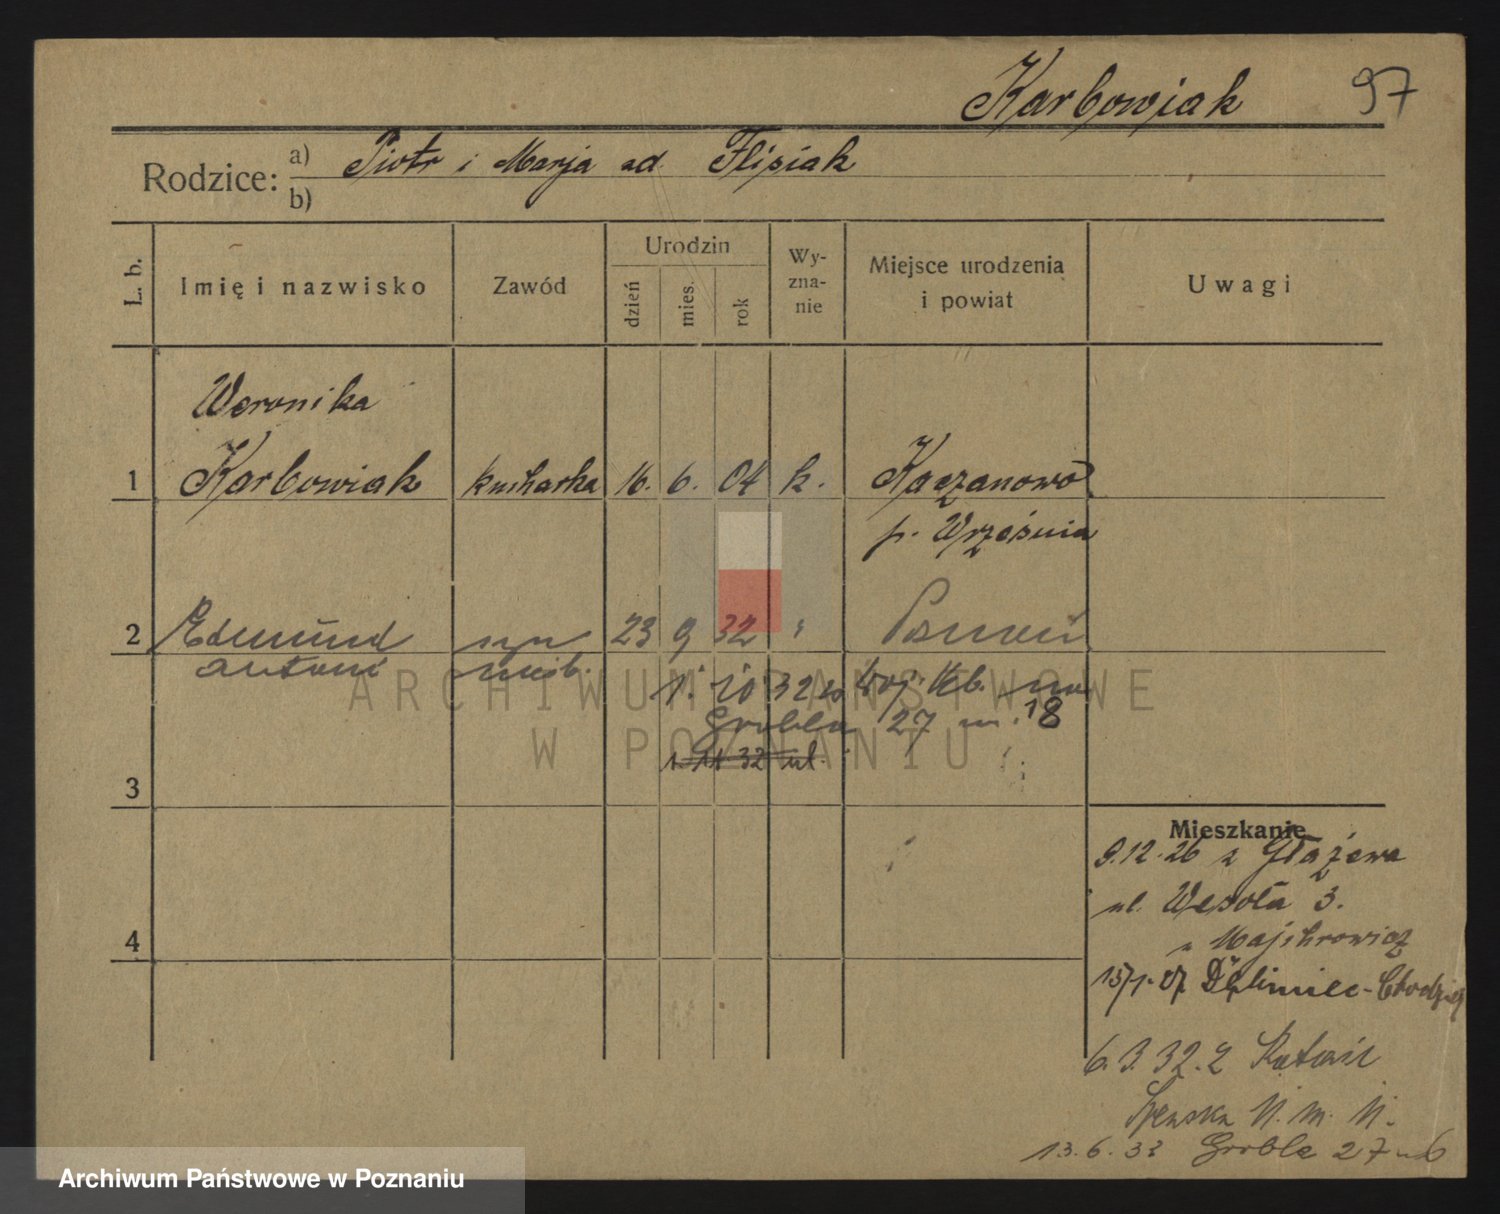 Karbowiak 97
Rodzice: a) Piotr i Marja od Flisiak
b)
L. b. Imię i nazwisko Zawód Urodzin dzień mies. rok Wyznanie Miejsce urodzenia i powiat Uwagi
Weronika
1 Karbowiak kucharka 16. 6. 04 k. Kaczanowo
p. Września
2 Edmund syn 23 9 32 " Poznań
Antoni nieśl.
1. 10 32
Grobla 27 m. 18
1. 11 32 ul.
3
Mieszkanie
9.12.26 z Głażewa
ul. Wesoła 3.
4
u Majchrowicz
15/1. 27
6. 3. 32. z
11. m. 11.
13. 6. 33 Grobla 27 6
ARCHIWUM PAŃSTWOWE
W POZNANIU
Archiwum Państwowe w Poznaniu